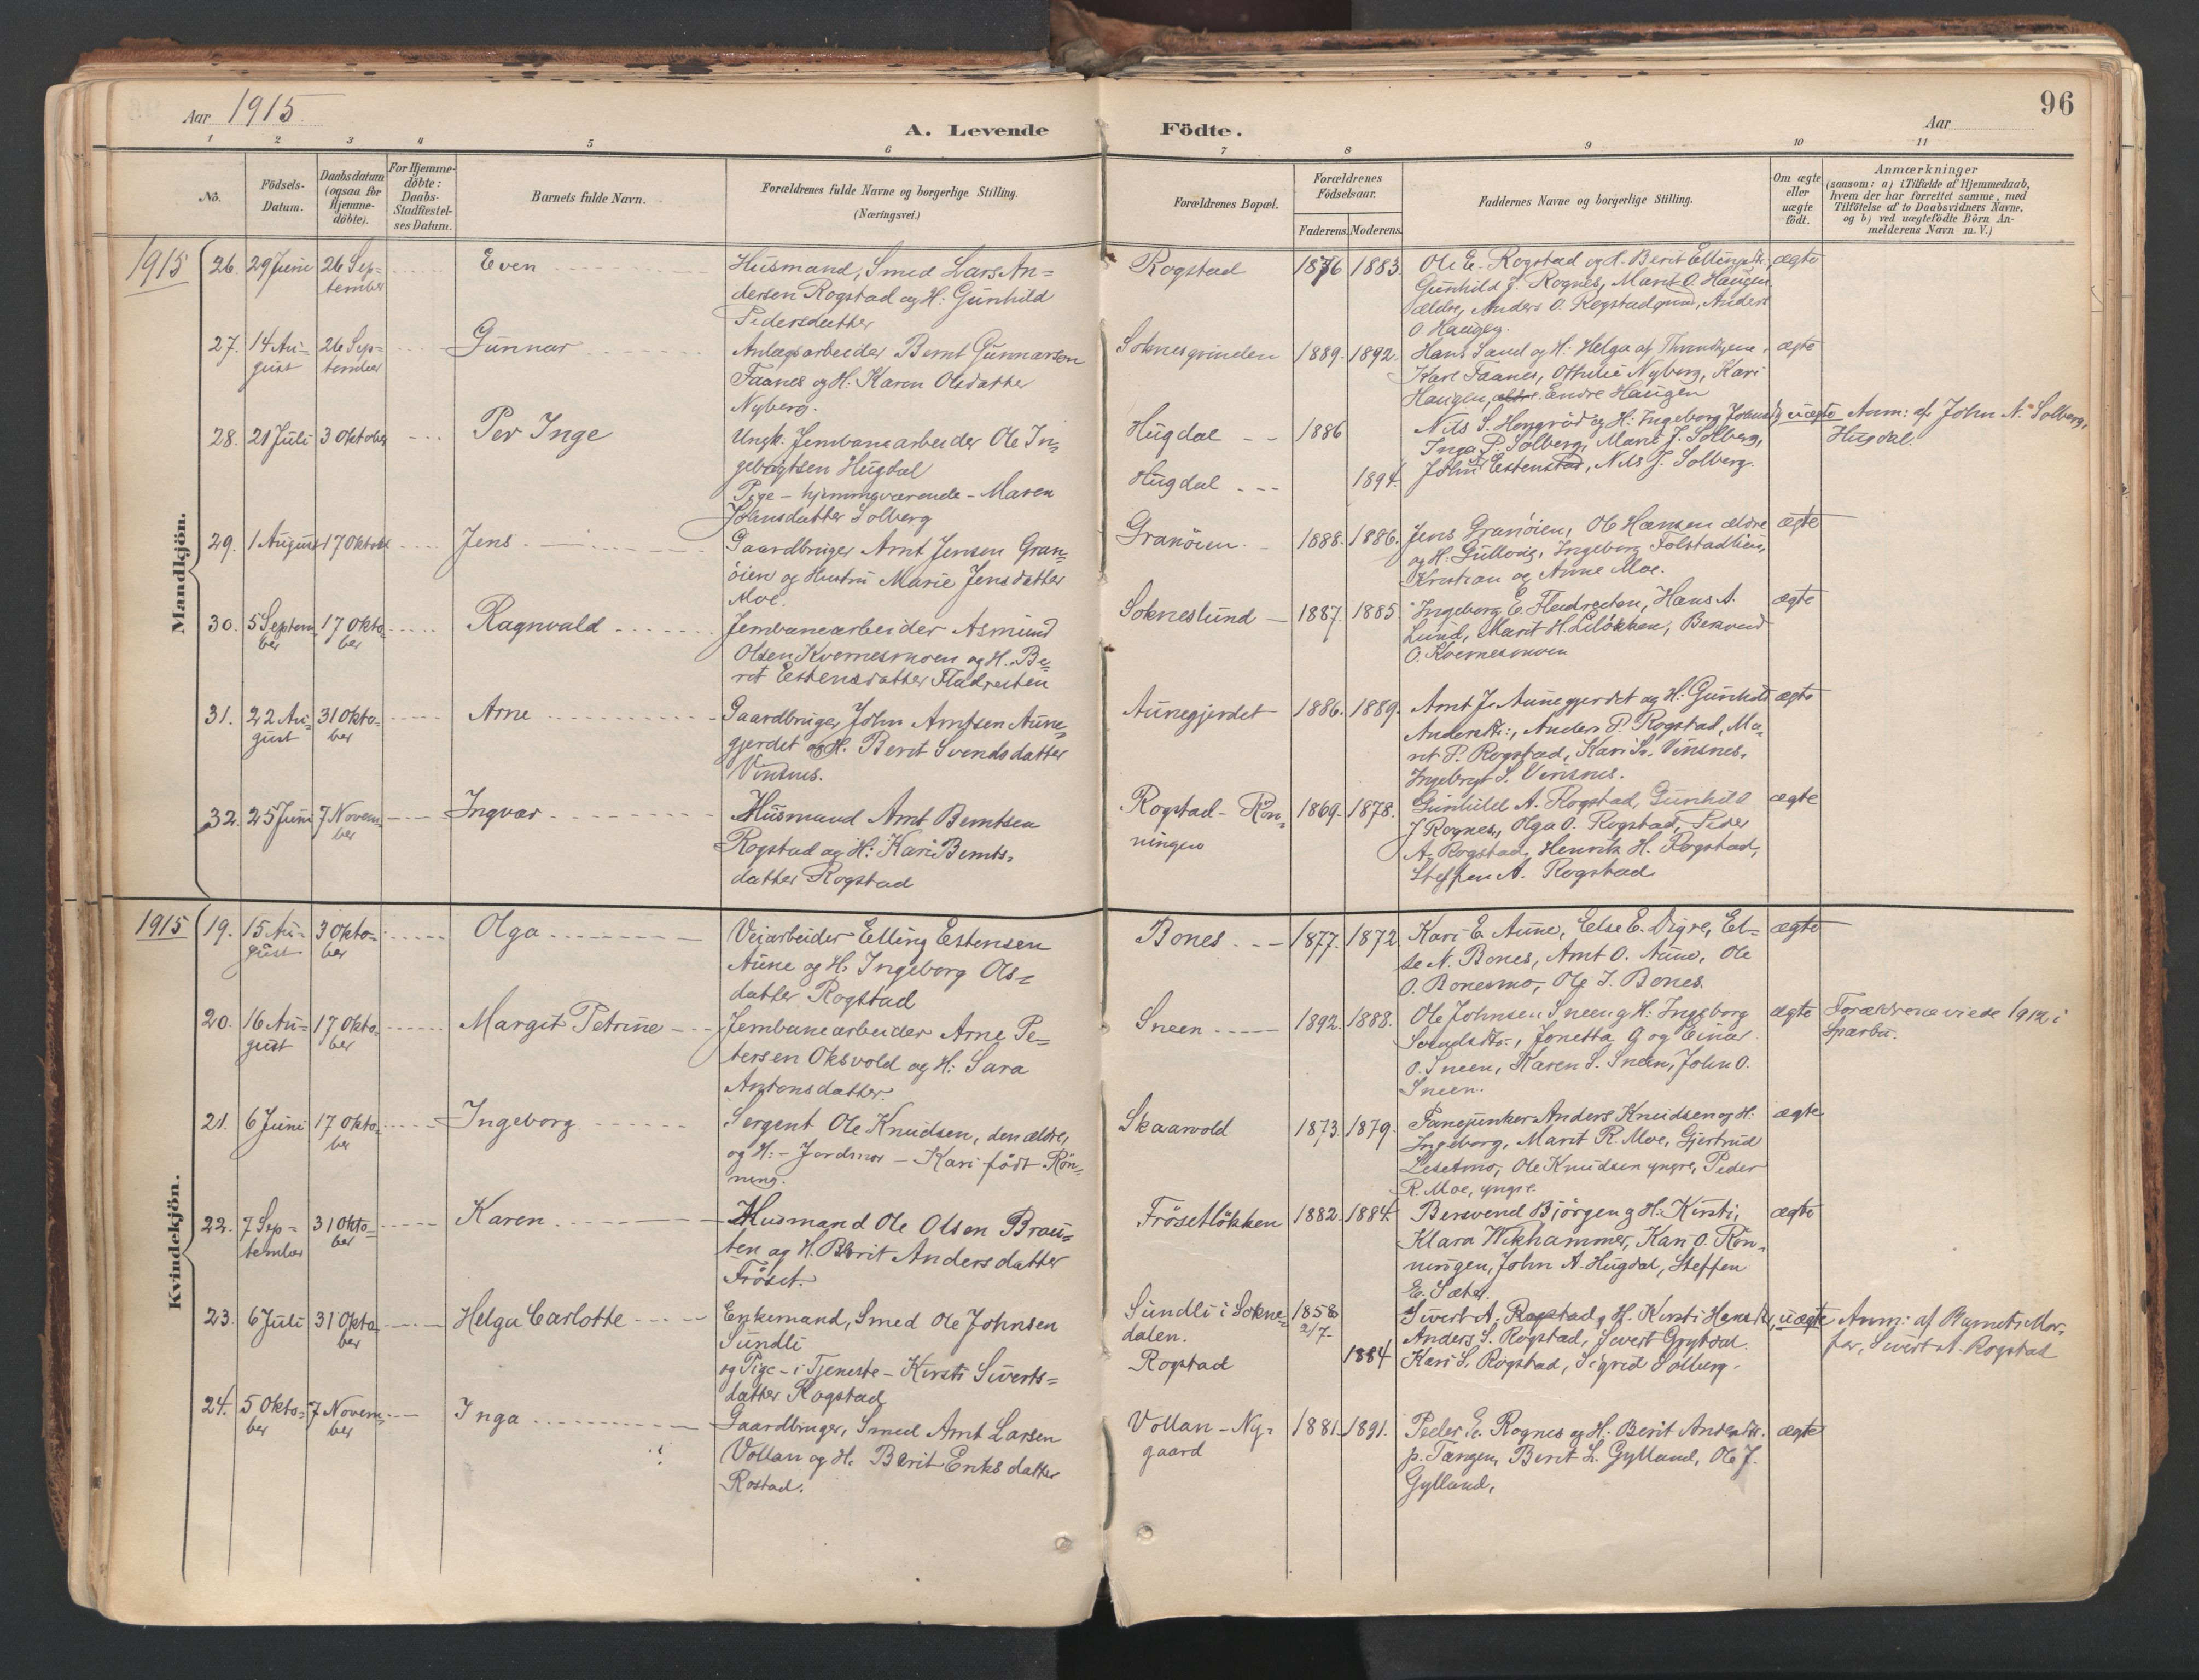 96
Aar 1915.
A. Levende Födte.
Aar
1 2 3 4 5 6 7 8 9 10 11
No.
Födsels-
Datum.
Daabsdatum
(ogsaa for
Hjemme-
döbte).
For Hjemme-
döbte:
Daabs-
Stadfæstel-
ses Datum.
Barnets fulde Navn.
Forældrenes fulde Navne og borgerlige Stilling.
(Næringsvei.)
Forældrenes Bopæl.
Forældrenes
Födselsaar.
Faderens. Moderens.
Faddernes Navne og borgerlige Stilling.
Om ægte
eller
uægte
födt.
Anmærkninger
(saasom: a) i Tilfælde af Hjemmedaab,
hvem der har forrettet samme, med
Tilföielse af to Daabsvidners Navne,
og b) ved uægtefödte Börn An-
melderens Navn m. V.)
Mandkjön.
1915
26. 29 Juni 26 Sep=
tember
Even
Husmand, Smed Lars An=
dersen Rogstad og H: Gunhild
Pedersdatter
Rogstad
1876 1883.
Ole E. Rogstad og H. Berit Ellingsdtr.,
Gunhild J. Rognes, Marit O. Haugen
ældre, Anders O. Rogstad, Anders
O. Haugen.
ægte
27. 14 Au=
gust
26 Sep=
tember
Gunnar
Anlægsarbeider Bernt Gunnarsen
Faanes og H: Karen Olsdatter
Nyberg.
Soknesgrinden
1889. 1892.
Hans Sand og H: Helga af Throndhjem,
Karl Faanes, Othilie Nyberg, Kari
Haugen, Endre Haugen
ægte
28. 21 Juli 3 Oktober
Per Inge
Ungk. Jernbanearbeider Ole In=
gebrigtsen Hugdal
Pige - hjemmeværende - Maren
Johnsdatter Solberg
Hugdal
1886
Hugdal
1894.
Nils S. Hongröd og H: Ingeborg Johnsd.
Inga P. Solberg, Marit J. Solberg,
John Estenstad, Nils J. Solberg.
uægte
Anm: af John N. Solberg,
Hugdal.
29. 1 August 17 Oktober
Jens
Gaardbruger Arnt Jensen Gran=
öien og Hustru Marie Jensdatter
Moe.
Granöien
1888. 1886.
Jens Granöien, Ole Hansen ældre
og H: Gullovig, Ingeborg Folstadlien,
Kristian og Anne Moe.
ægte
30. 5 Septem
ber
17 Okto=
ber
Ragnvald
Jernbanearbeider Asmund
Olsen Kvernesmoen og H. Be=
rit Estensdatter Fladresten
Sokneslund
1887. 1885.
Ingeborg E. Fladresten, Hans A.
Lund, Marit H. Lilökken, Bersvend
O. Kvernesmoen
ægte
31. 22 Au=
gust
31 Okto=
ber
Arne
Gaardbruger John Arntsen Aune=
gjerdet og H. Berit Svendsdatter
Vinsnes.
Aunegjerdet
1886. 1889.
Arnt J. Aunegjerdet og H: Gunhild
Andersdtr., Anders P. Rogstad, Ma=
rit P. Rogstad, Kari S. Vinsnes,
Ingebrigt S. Vinsnes.
ægte
32. 25 Juni 7 Novem=
ber
Ingvar
Husmand Arnt Berntsen
Rogstad og H: Kari Bernts=
datter Rogstad
Rogstad - Rön=
ningen
1869. 1878.
Gunhild A. Rogstad, Gunhild
J Rognes, Olga O. Rogstad, Peder
A. Rogstad, Henrik H. Rogstad,
Steffen A. Rogstad
ægte
Kvindekjön.
1915
19. 15 Au=
gust
3 Okto=
ber
Olga
Veiarbeider Elling Estensen
Aune og H. Ingeborg Ols=
datter Rogstad
Bones
1877. 1872
Kari E. Aune, Else E. Digre, El=
se N. Bones, Arnt O. Aune, Ole
O. Bonesmo, Ole J. Bones.
ægte
20. 16 Au=
gust
17 Okto=
ber
Margit Petrine
Jernbanearbeider Arne Pe=
tersen Oksvold og H: Sara
Antonsdatter.
Sneen
1892. 1888.
Ole Johnsen Sneen og H: Ingeborg
Svendsdtr., Jonetta O og Einar
O. Sneen, Karen S. Sneen, John O.
Sneen.
ægte
Forældrene viede 1912 i
Sparbu.
21. 6 Juni 17 Okto=
ber
Ingeborg
Sergent Ole Knudsen, den ældre,
og H: - Jordmor - Kari födt Rön=
ning.
Skaarvold
1873. 1879.
Fanejunker Anders Knudsen og H:
Ingeborg, Marit R. Moe, Gjertrud
Lesetmo, Ole Knudsen yngre, Peder
R. Moe, yngre.
ægte
22. 7 Sep=
tember
31 Okto=
ber
Karen
Husmand Ole Olsen Brau=
ten og H. Berit Andersdatter
Fröset.
Frösetlökken
1882. 1884.
Bersvend Björgen og H: Kirsti,
Klara Wikhammer, Kari O. Rön=
ningen, John A. Hugdal, Steffen
E. Sæter.
ægte
23. 6 Juli 31 Okto=
ber
Helga Carlotte
Enkemand, Smed Ole Johnsen
Sundli
og Pige - i Tjeneste - Kirsti Siverts=
datter Rogstad
Sundli i Sokne=
dalen.
Rogstad
1858
2/7.
1884
Sivert A. Rogstad og H. Kirsti Hansdtr.,
Anders S. Rogstad, Sivert Grytdal.
Kari S. Rogstad, Sigrid Solberg.
uægte
Anm: af Barnets Mor=
far, Sivert A. Rogstad
24. 5 Okto=
ber
7 Novem=
ber
Inga
Gaardbruger, Smed Arnt Larsen
Vollan og H. Berit Eriksdatter
Rostad.
Vollan - Ny=
gaard
1881. 1891.
Peder E. Rognes og H. Berit Andersdtr.
p. Tangen, Berit L. Gylland, Ole J.
Gylland,
ægte